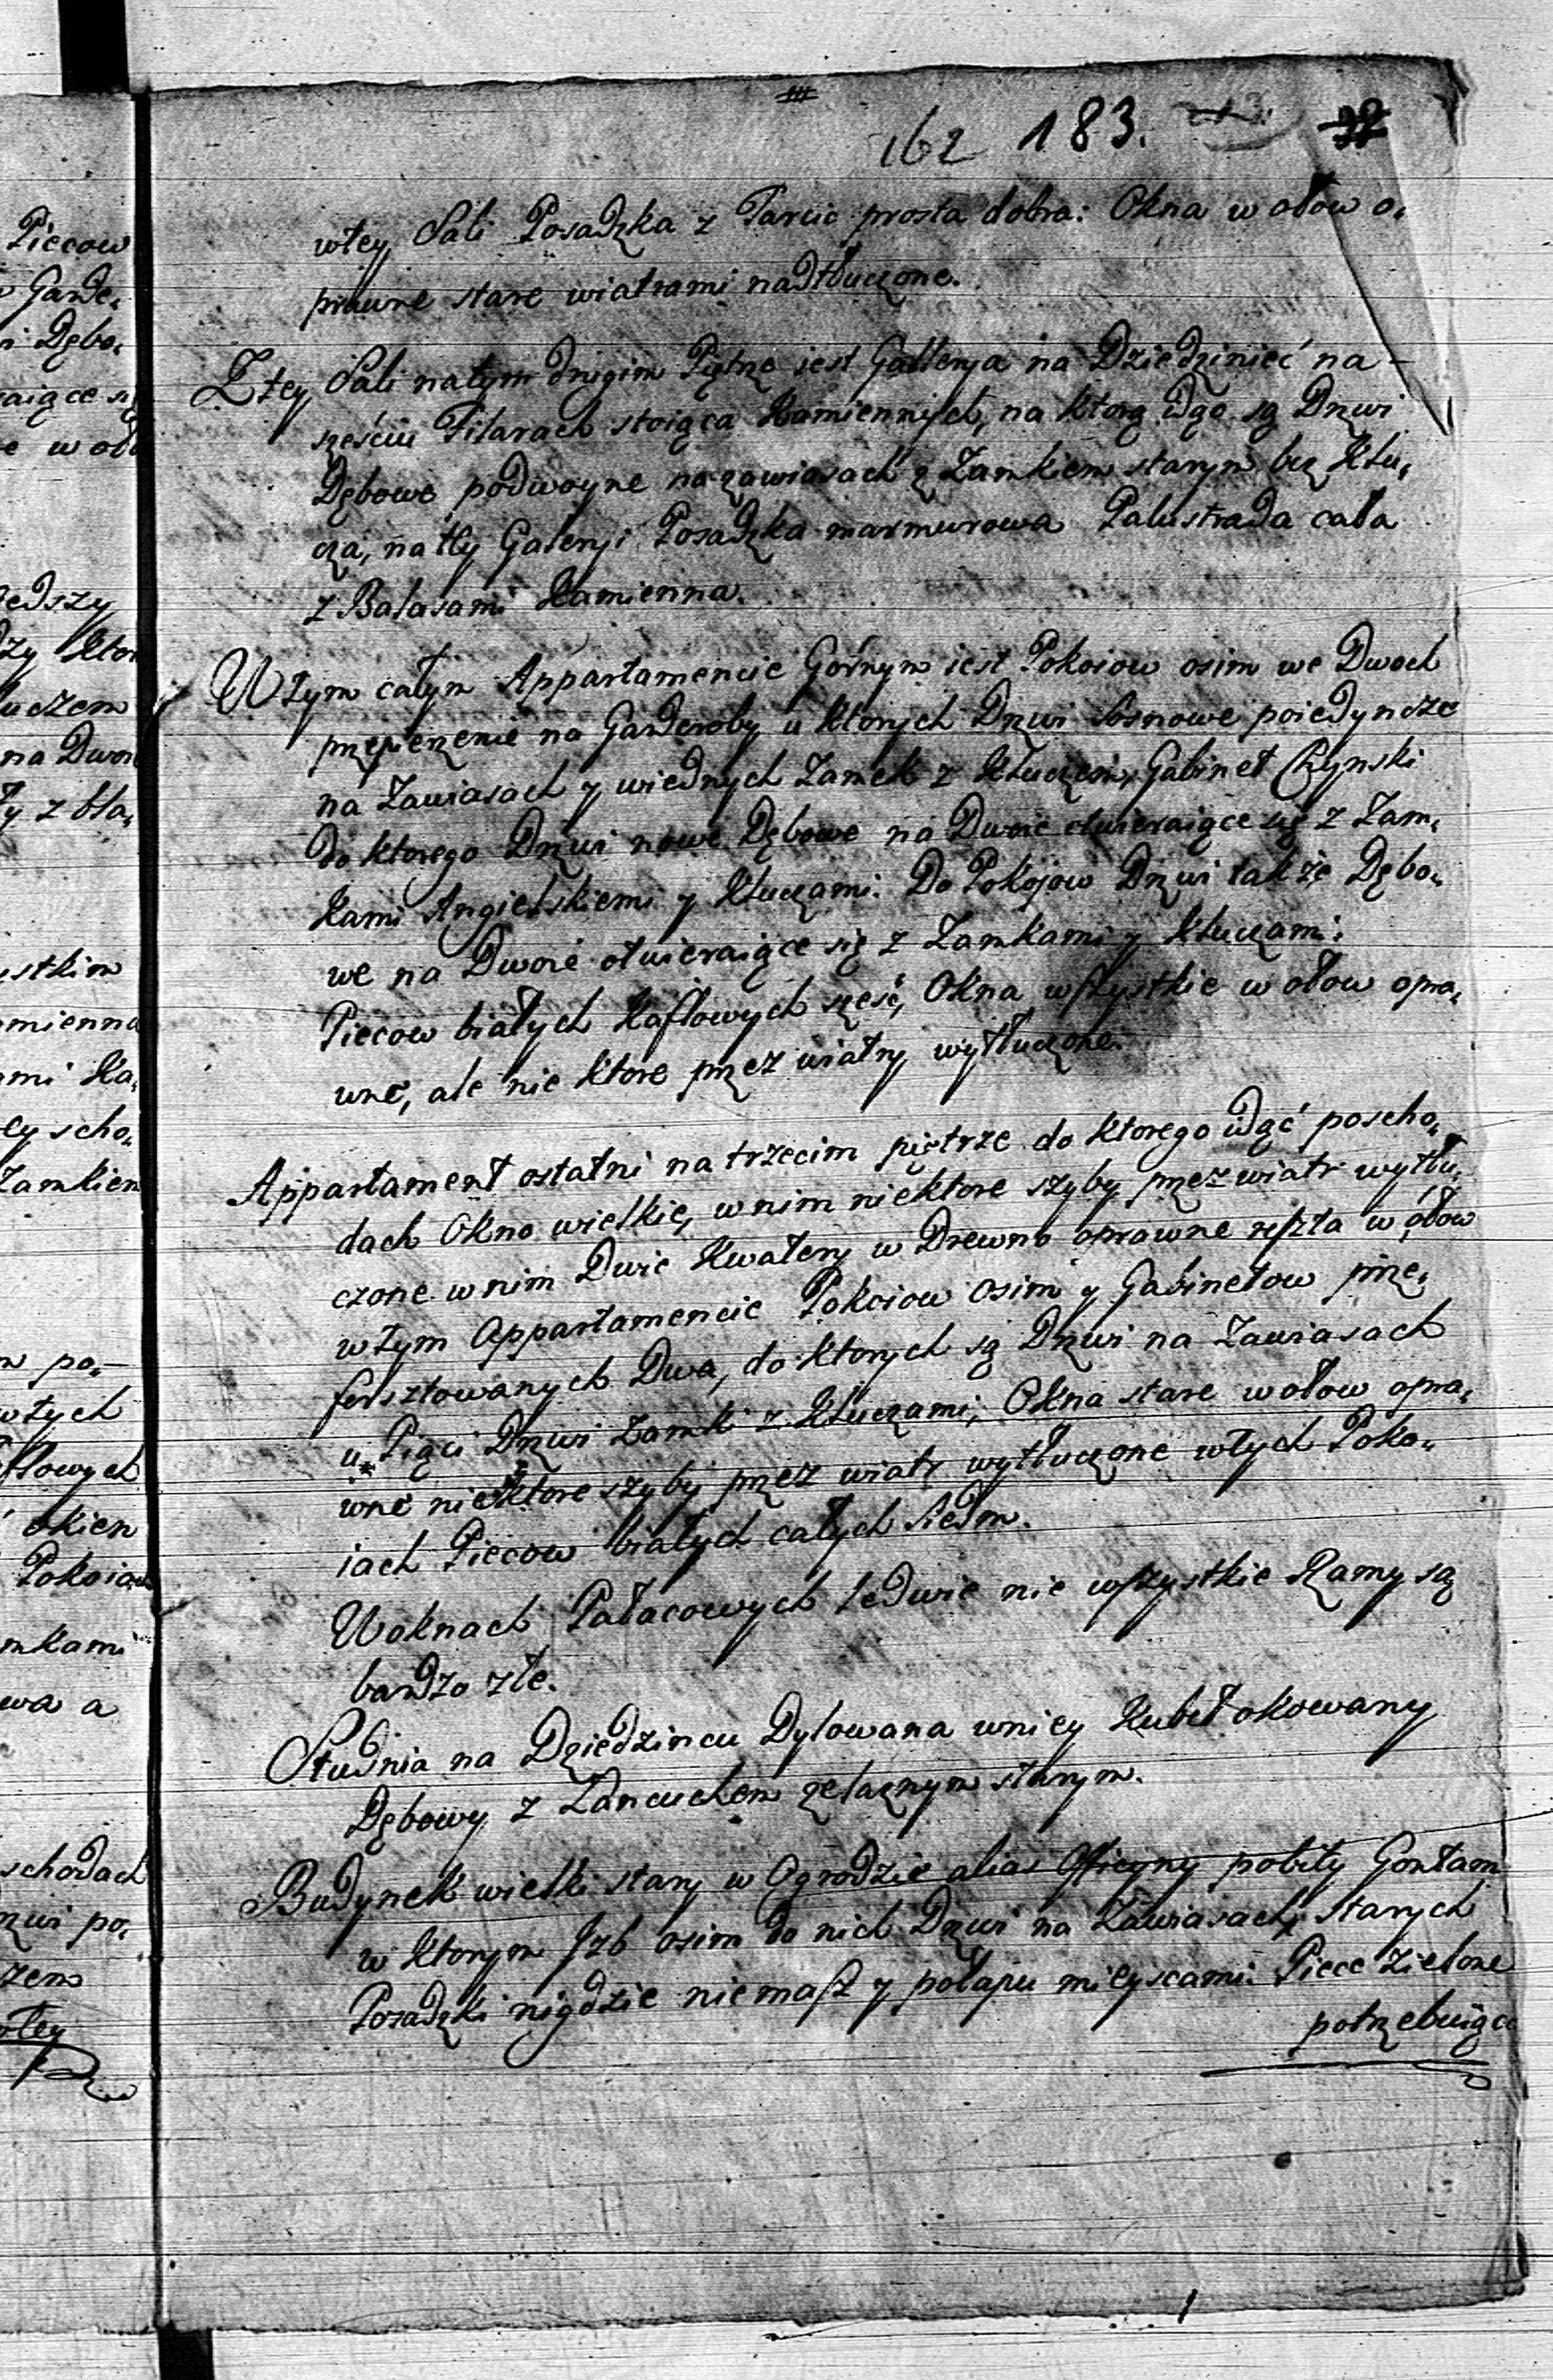 162 183.
wtey Sali Posadzka z Tarcic prosta dobra: Okna w ołow o,
prawne stare wiatrami nadtłuczone.
Ztey Sali natym drugim Piętrze jest Gallerya na Dziedziniec na
sześciu Filarach stoiąca Kamiennych, na ktorą idąc są Drzwi
Dębowe podwoyne na zawiasach z Zamkiem starym bez Klu,
cza, na tey Galeryi Posadzka marmurowa Palustrada cała
z Balasami Kamienna.
Wtym całym Appartamencie Gornym iest Pokoiow osim we Dwoch
przepierzenie na Garderoby u ktorych Drzwi Sosnowe poiedyncze
na Zawiasach y wiednych Zamek z Kluczem, Gabinet Chynski
do ktorego Drzwi nowe Dębowe na Dwoie otwieraiące się z Zam,
kami Angielskiemi y Kluczami. Do Pokojow Drzwi także Dębo,
we na Dwoie otwieraiące się z Zamkami y Kluczami.
Piecow białych Kaflowych sześć, Okna wszystkie w ołow opra,
wne, ale nie ktore przez wiatry wytłuczone.
Appartament ostatni na trzecim piętrze do ktorego idąć poscho,
dach Okno wielkie, wnim niektore szyby przez wiatr wytłu,
czone wnim Dwie Kwatery w Drewno oprawne reszta w ołow
wtym Appartamencie Pokoiow osim y Gabinetow prze,
fersztowanych Dwa, do ktorych są Drzwi na Zawiasach
u Pięci Drzwi Zamki z Kluczami, Okna stare wołow opra,
wne niektore szyby przez wiatr wytłuczone wtych Poko,
iach Piecow białych całych siedm.
Woknach Pałacowych ledwie nie wszystkie Ramy są
bardzo złe.
Studnia na Dziedzincu Dylowana wniey Kubeł okowany
Dębowy z Łancuchem zelaznym starym.
Budynek wielki stary w Ogrodzie alias Oficyny pobity Gontam
w ktorym Jzb osim do nich Drzwi na Zawiasach starych
Posadzki nigdzie niemasz y połapu mieyscami. Piece zielone
potrzebuiące